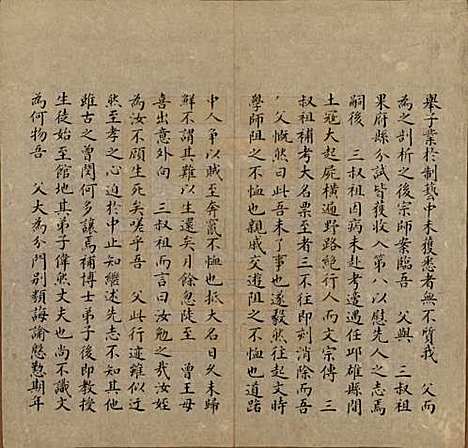 舉子業於制藝中未獲悉者無不質我　父而
為之剖析之後宗師案臨吾　父與　三叔祖
果府縣分試皆獲收入第八以慰先人之志焉
嗣後　三叔祖因病未赴考遭遇任邱雄縣間
土寇大起屍橫遍野路絕行人而文宗傳　三
叔祖補考大名票至者三不往即刻消除而吾
父慨然曰此吾未了事也遂毅然往起文時
學師阻之不恤也親戚交遊阻之不恤也道路
中人爭以賊至奔竄不恤也抵大名日久未歸
鮮不謂其難以生還矣月餘忽陡至　曾王母
喜出意外向　三叔祖而言曰汝勉之哉汝姪
為汝不顧生死矣嗟乎吾　父此行迹雖似近
然至孝之心迫於中止知繼述先志不知其他
雖古之曾閔何多讓焉補博士弟子後即教授
生徒始至館地其弟子偉然丈夫也尚不識文
為何物吾　父大為分門別類誨諭懇懃期年